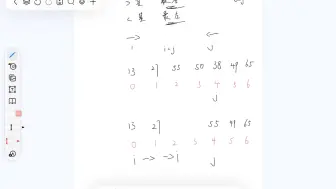 i i=j j
13 27 55 50 38 49 65
0 1 2 3 4 5 6
j
13 27 55 49 65
0 1 2 3 4 5 6
i → → i j